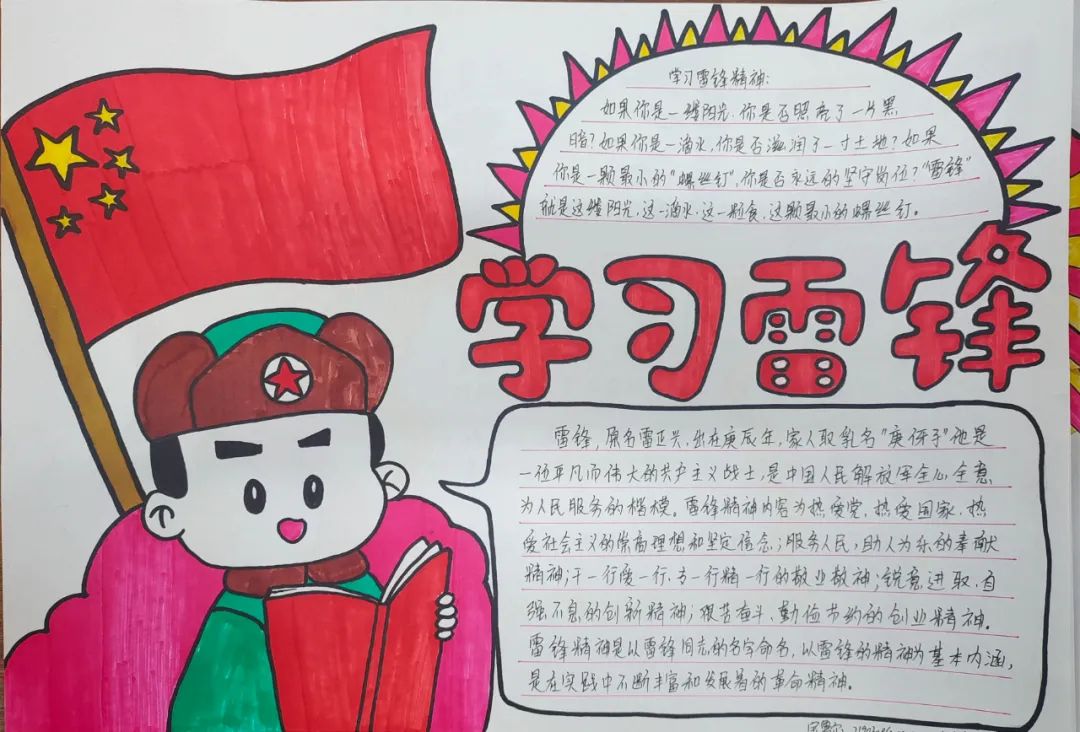 学习雷锋精神：
如果你是一缕阳光，你是否照亮了一片黑
暗？如果你是一滴水，你是否滋润了一寸土地？如果
你是一颗最小的“螺丝钉”，你是否永远的坚守岗位？“雷锋”
就是这缕阳光，这一滴水，这一粒食，这颗最小的螺丝钉。
学习雷锋
雷锋，原名雷正兴，出在庚辰年，家人取乳名“庚伢子”他是
一位平凡而伟大的共产主义战士，是中国人民解放军全心全意
为人民服务的楷模。雷锋精神内容为热爱党、热爱国家、热
爱社会主义的崇高理想和坚定信念；服务人民，助人为乐的奉献
精神；干一行爱一行、专一行精一行的敬业敬神；锐意进取、自
强不息的创新精神；艰苦奋斗、勤俭节约的创业精神。
雷锋精神是以雷锋同志的名字命名，以雷锋的精神为基本内涵，
是在实践中不断丰富和发展着的革命精神。